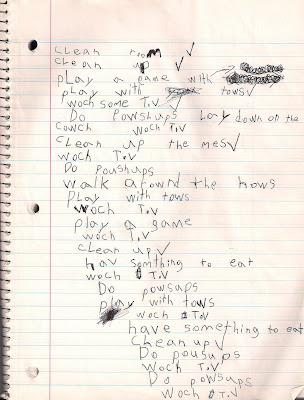 clean room ✓
clean up ✓
play a game with
play with tows ✓
woch some T.V ✓
Do powshups Lay down on the
cowch woch T.V
clean up the mes ✓
woch T.V
Do poushups
walk around the hows
play with tows
woch T.V
play a game
woch T.V
clean up ✓
hav somthing to eat
woch T.V
Do powsups
play with tows
woch T.V
have something to eat
Clean up ✓
Do pousups
woch T.V
Do powsups
woch T.V